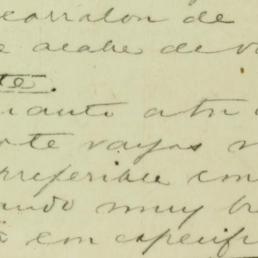 corralon de
acabe de
te.
uanto atn
te vayas
referible con
ando muy
con especifi